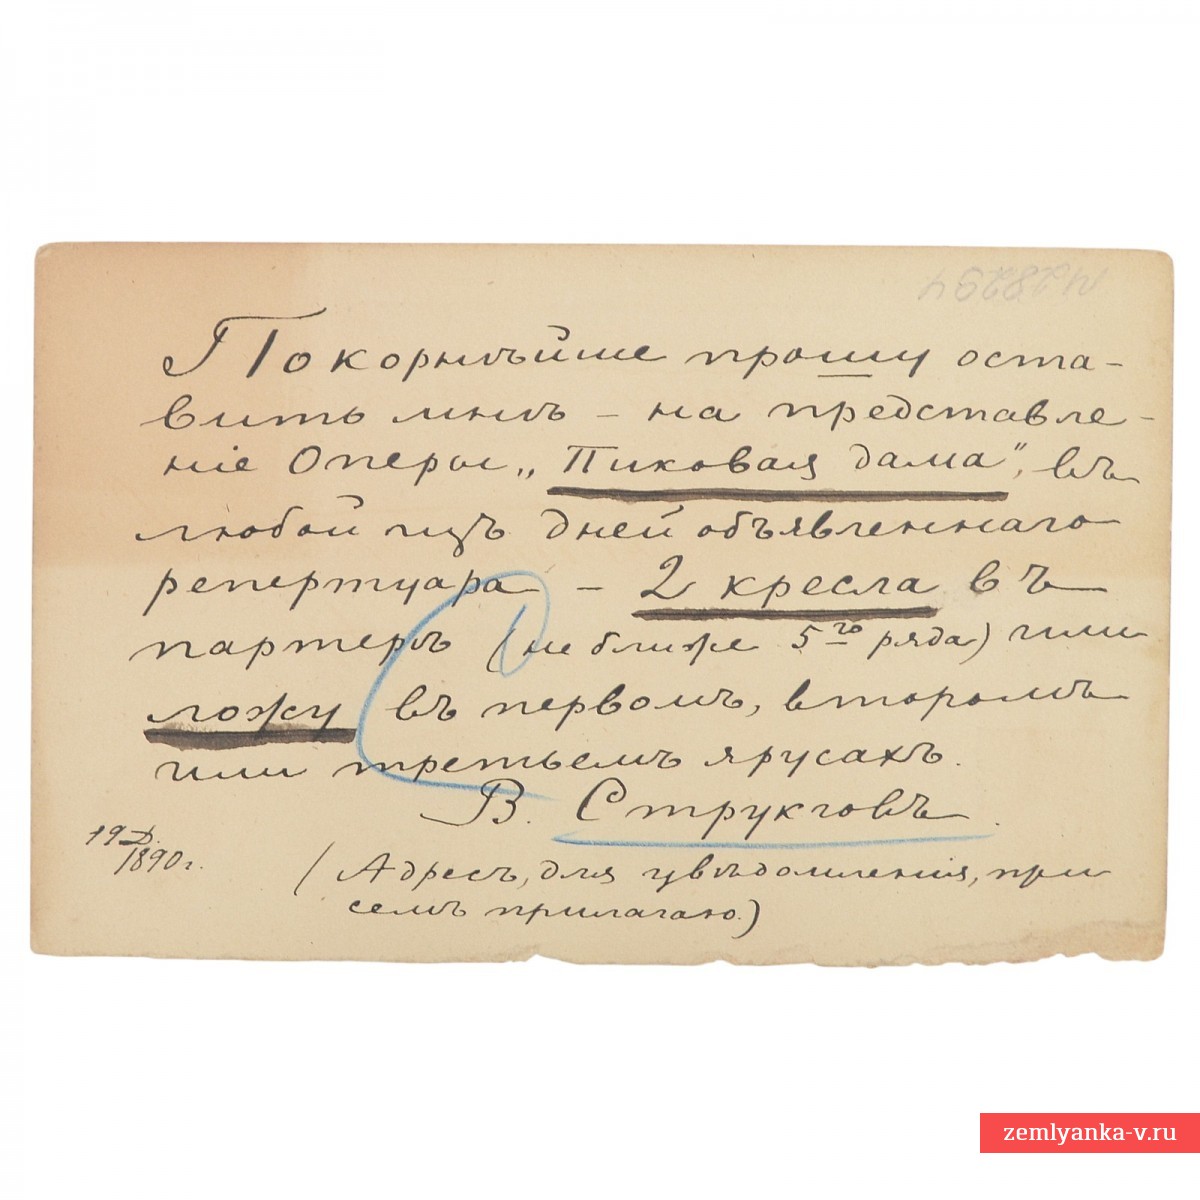 428294
Покорнѣйше прошу оста-
вить мнѣ – на представле-
ніе Оперы „Пиковая дама", въ
любой изъ дней объявленнаго
репертуара – 2 кресла въ
партерѣ (не ближе 5го ряда) или
ложу въ первомъ, второмъ
или третьемъ ярусахъ.
В. Струковъ.
19 Д.
1890 г.
(Адресъ, для увѣдомленія, при
семъ прилагаю.)
zemlyanka-v.ru